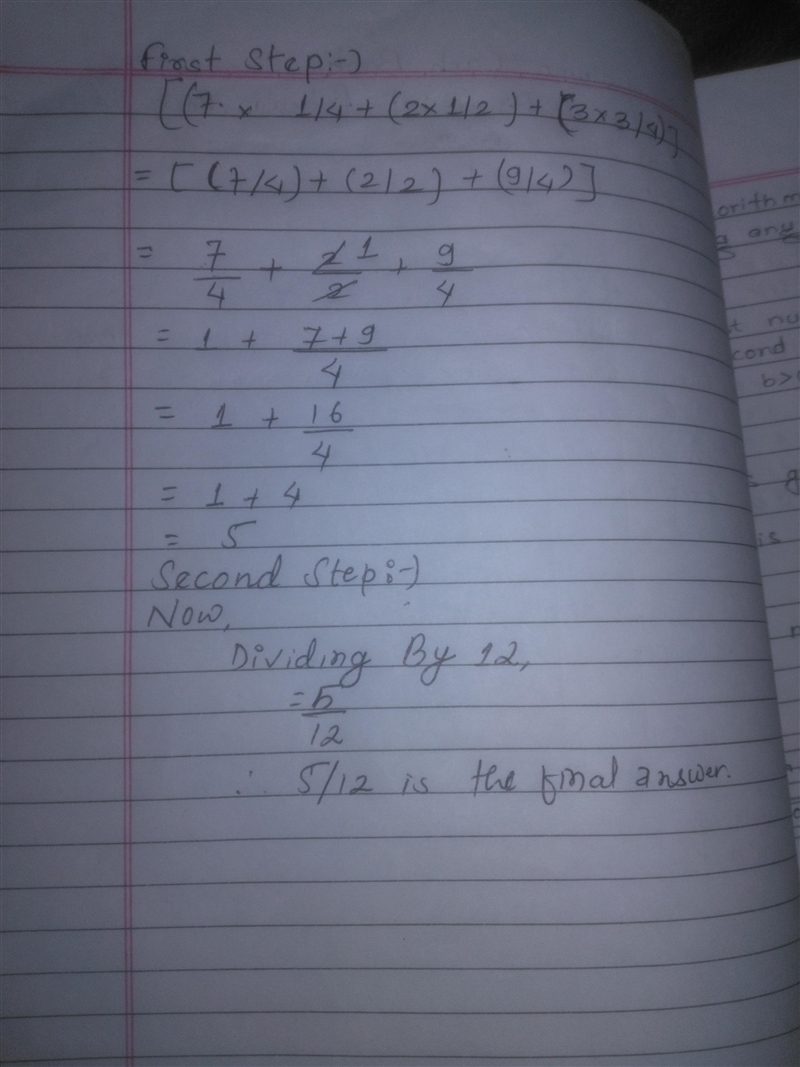 First Step:-)
[(7 × 1/4 + (2×1/2) + (3×3/4)]
= [(7/4) + (2/2) + (9/4)]
= 7/4 + 2/2 1 + 9/4
= 1 + 7+9/4
= 1 + 16/4
= 1 + 4
= 5
Second Step:-)
Now,
Dividing By 12,
= 5/12
∴ 5/12 is the final answer.
orithm
any
cond
b>
is